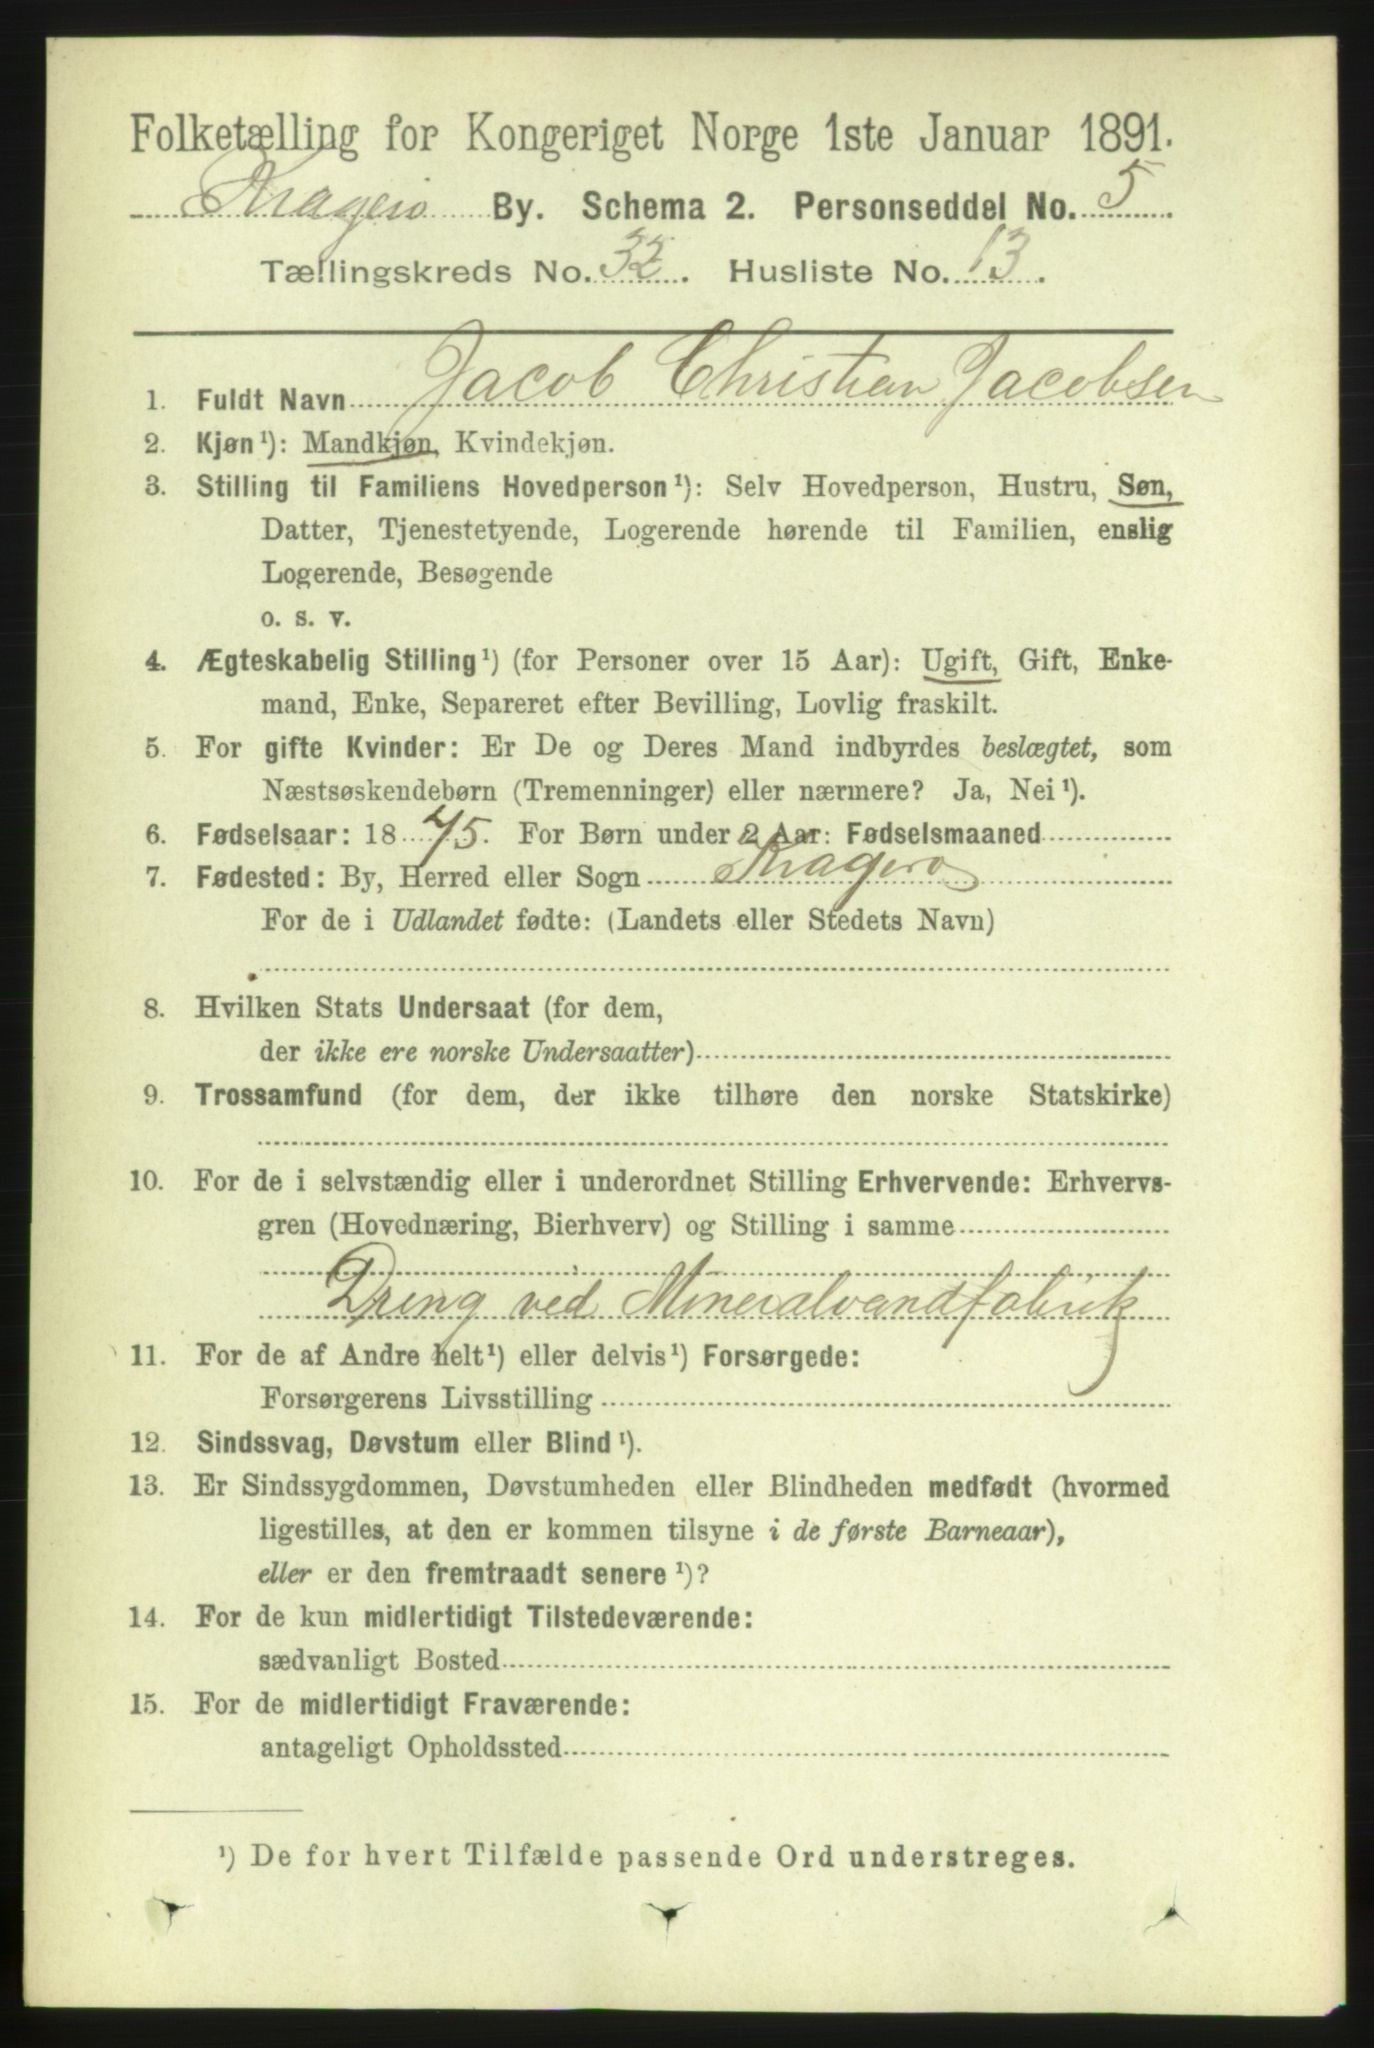 Folketælling for Kongeriget Norge 1ste Januar 1891.
Kragerö By. Schema 2. Personseddel No. 5.
Tællingskreds No. 32. Husliste No. 13.
1. Fuldt Navn Jacob Christian Jacobsen
2. Kjøn¹): Mandkjøn, Kvindekjøn.
3. Stilling til Familiens Hovedperson¹): Selv Hovedperson, Hustru, Søn,
Datter, Tjenestetyende, Logerende hørende til Familien, enslig
Logerende, Besøgende
o. s. v.
4. Ægteskabelig Stilling¹) (for Personer over 15 Aar): Ugift, Gift, Enke-
mand, Enke, Separeret efter Bevilling, Lovlig fraskilt.
5. For gifte Kvinder: Er De og Deres Mand indbyrdes beslægtet, som
Næstsøskendebørn (Tremenninger) eller nærmere? Ja, Nei¹).
6. Fødselsaar: 1875. For Børn under 2 Aar: Fødselsmaaned
7. Fødested: By, Herred eller Sogn Kragerö
For de i Udlandet fødte: (Landets eller Stedets Navn)
8. Hvilken Stats Undersaat (for dem,
der ikke ere norske Undersaatter)
9. Trossamfund (for dem, der ikke tilhøre den norske Statskirke)
10. For de i selvstændig eller i underordnet Stilling Erhvervende: Erhvervs-
gren (Hovednæring, Bierhverv) og Stilling i samme
Dreng ved Mineralvandfabrik
11. For de af Andre helt¹) eller delvis¹) Forsørgede:
Forsørgerens Livsstilling
12. Sindssvag, Døvstum eller Blind¹).
13. Er Sindssygdommen, Døvstumheden eller Blindheden medfødt (hvormed
ligestilles, at den er kommen tilsyne i de første Barneaar),
eller er den fremtraadt senere¹)?
14. For de kun midlertidigt Tilstedeværende:
sædvanligt Bosted
15. For de midlertidigt Fraværende:
antageligt Opholdssted
¹) De for hvert Tilfælde passende Ord understreges.